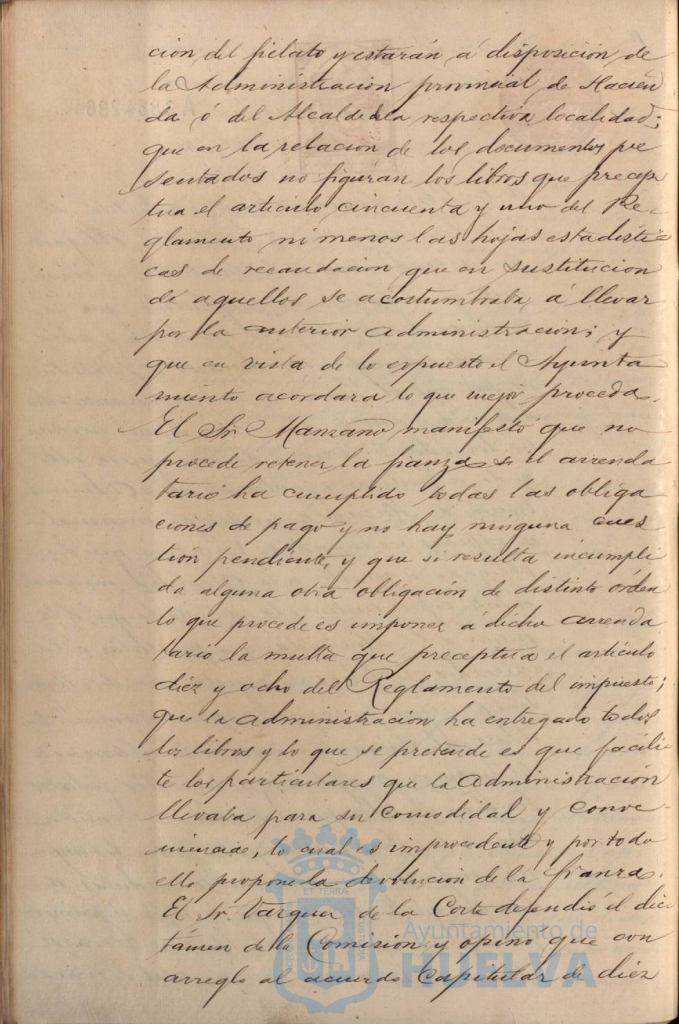 cion del fielato y estarán á disposición de
la Administracion provincial de Hacien
da ó del Alcalde de la respectiva localidad;
que en la relacion de los documentos pre
sentados no figuran los libros que precep
tua el articulo cincuenta y uno del Re-
glamento ni menos las hojas estadisti-
cas de recaudacion que en sustitucion
de aquellos se acostumbraba á llevar
por la anterior administracion; y
que en vista de lo expuesto el Ayunta
miento acordara lo que mejor proceda.
El Sr. Manzano manifestó que no
procede retener la fianza si el arrenda
tario ha cumplido todas las obliga
ciones de pago y no hay ninguna cues
tion pendiente, y que si resulta incumpli
da alguna otra obligación de distinto órden
lo que procede es imponer á dicho arrenda
tario la multa que preceptua el artículo
diez y ocho del Reglamento del impuesto;
que la administracion ha entregado todos
los libros y lo que se pretende es que facili-
te los particulares que la administración
llevaba para su comodidad y conve-
niencia, lo cual es improcedente y por todo
ello propone la devolucion de la fianza.
El Sr. Vazquez de la Corte defendió el dic
támen de la Comision y opinó que con
arreglo al acuerdo Capitular de diez
Ayuntamiento de
HUELVA